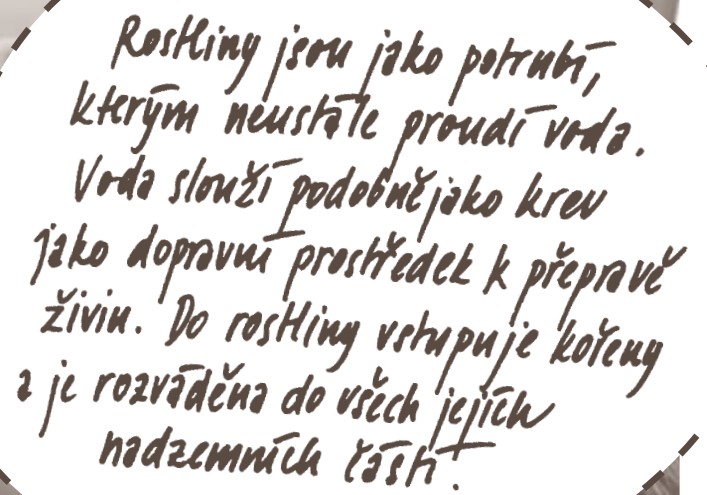 Rostliny jsou jako potrubí,
kterým neustále proudí voda.
Voda slouží podobně jako krev
jako dopravní prostředek k přepravě
živin. Do rostliny vstupuje kořeny
a je rozváděna do všech jejích
nadzemních částí.